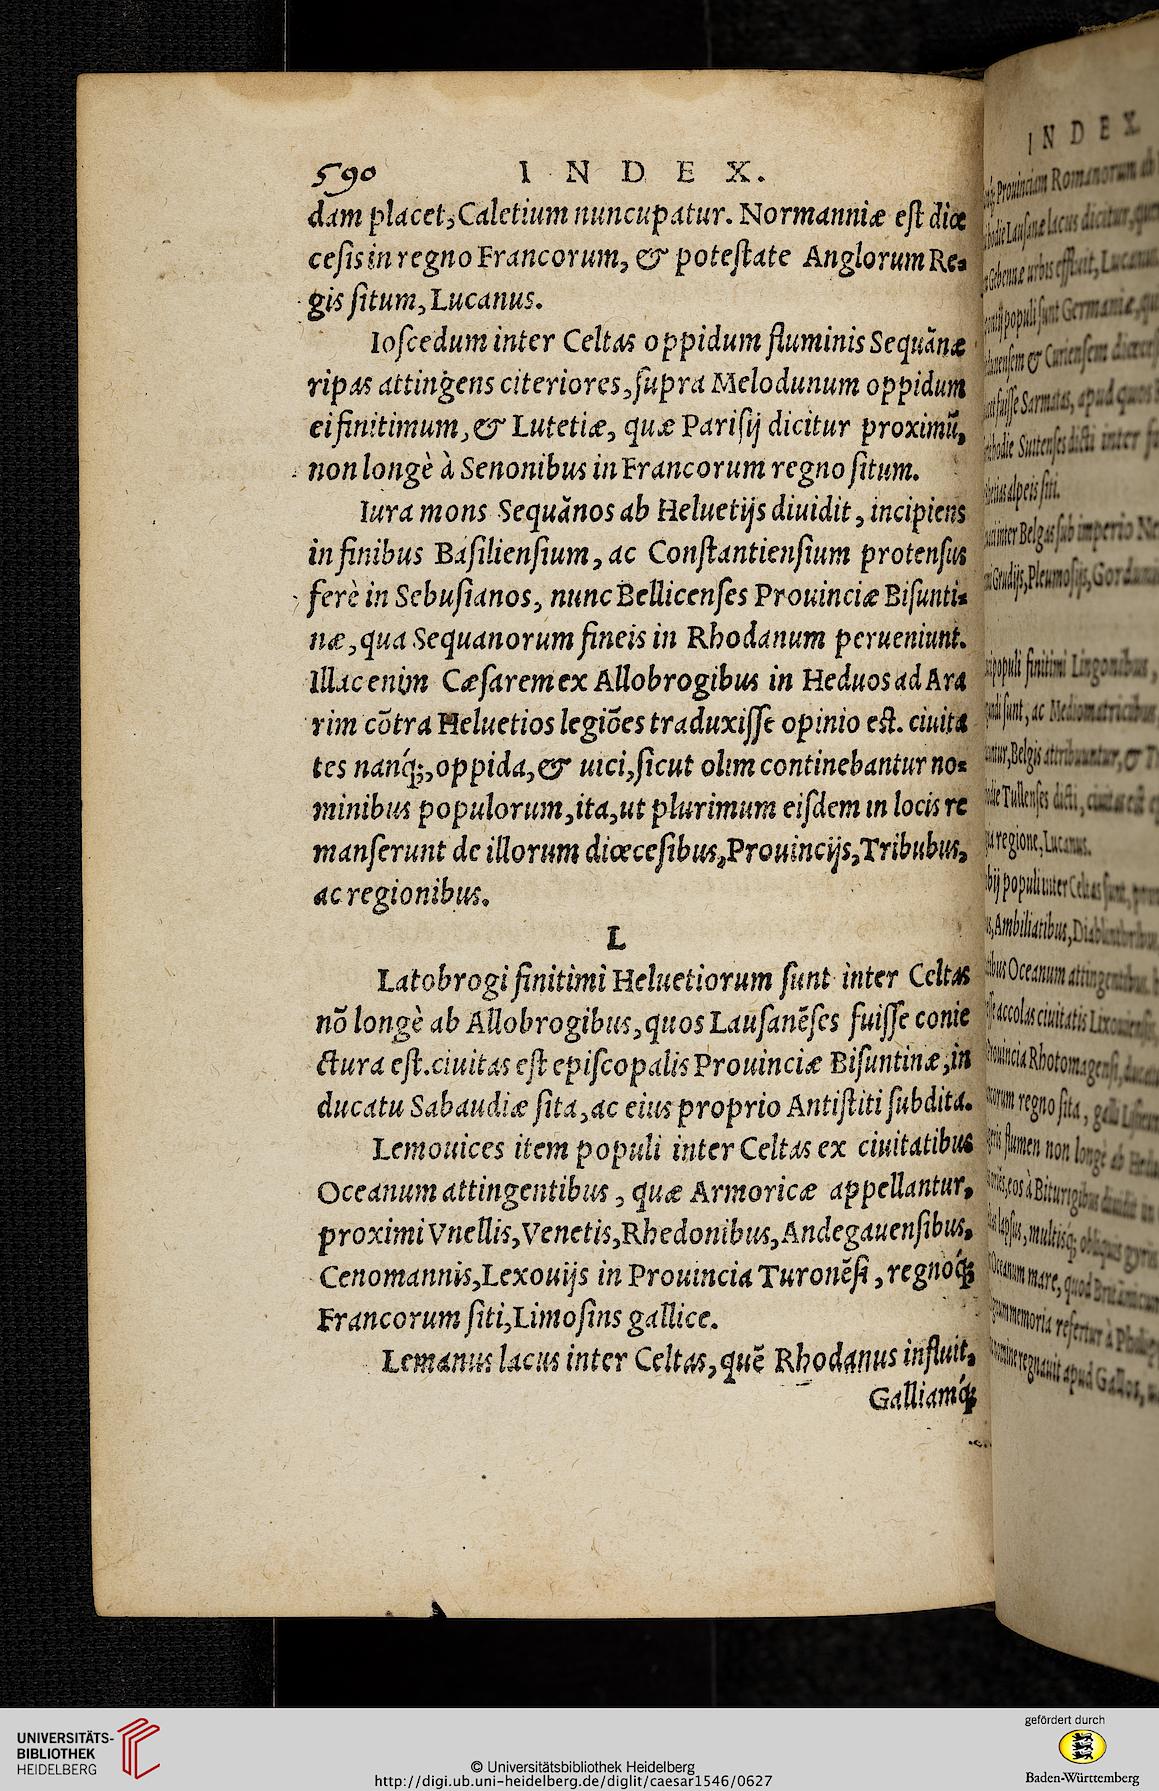 590 INDEX.
dam placet, Caletium nuncupatur. Normanniæ eſt diœ
ceſis in regno Francorum, & poteſtate Anglorum Re-
gis ſitum, Lucanus.
Ioſcedum inter Celtas oppidum fluminis Sequãnæ
ripas attingens citeriores, ſupra Melodunum oppidum
ei finitimum, & Lutetiæ, quæ Pariſij dicitur proximũ,
non longè à Senonibus in Francorum regno ſitum.
Iura mons Sequãnos ab Heluetijs diuidit, incipiens
in finibus Baſilienſium, ac Conſtantienſium protenſus
ferè in Sebuſianos, nunc Bellicenſes Prouinciæ Biſunti-
næ, qua Sequanorum fineis in Rhodanum perueniunt.
Illac enim Cæſarem ex Allobrogibus in Heduos ad Ara
rim cõtra Heluetios legiões traduxiſſe opinio eſt. ciuita
tes nanq́;, oppida, & uici, ſicut olim continebantur no-
minibus populorum, ita, ut plurimum eiſdem in locis re
manſerunt de illorum diœceſibus, Prouincijs, Tribubus,
ac regionibus.
L
Latobrogi finitimi Heluetiorum ſunt inter Celtas
nõ longè ab Allobrogibus, quos Lauſanẽſes fuiſſe conie
ctura eſt. ciuitas eſt epiſcopalis Prouinciæ Biſuntinæ, in
ducatu Sabaudiæ ſita, ac eius proprio Antiſtiti ſubdita.
Lemouices item populi inter Celtas ex ciuitatibus
Oceanum attingentibus, quæ Armoricæ appellantur,
proximi Vnellis, Venetis, Rhedonibus, Andegauenſibus,
Cenomannis, Lexouijs in Prouincia Turonẽſi, regnoq́;
Francorum ſiti, Limoſins gallice.
Lemanus lacus inter Celtas, quẽ Rhodanus influit,
Galliamq́;
INDEX
Prouinciam Romanorum ab
lacus dicitur,
urbis effluit,
populi ſunt Germaniæ,
& Curienſem
fuiſſe Sarmatas, apud quos
Suitenſes dicti inter
alpeis ſiti.
inter Belgas ſub imperio Ne
Pleumoſijs,
populi finitimi Lingonibus,
ſunt, ac Mediomatricibus
Belgis attribuuntur, &
Tullenſes dicti,
regione, Lucanus.
populi inter Celtas ſunt,
Ambiliatibus,
Oceanum attingentibus,
accolas ciuitatis
Rhotomagenſi,
regno ſita,
flumen non longè ab
eos à Biturigibus diuidit in
lapſus, multisq́; obliquus
mare, quod
memoria refertur à
regnauit apud Gallos,
UNIVERSITÄTS-
BIBLIOTHEK
HEIDELBERG
© Universitätsbibliothek Heidelberg
http://digi.ub.uni-heidelberg.de/diglit/caesar1546/0627
gefördert durch
Baden-Württemberg